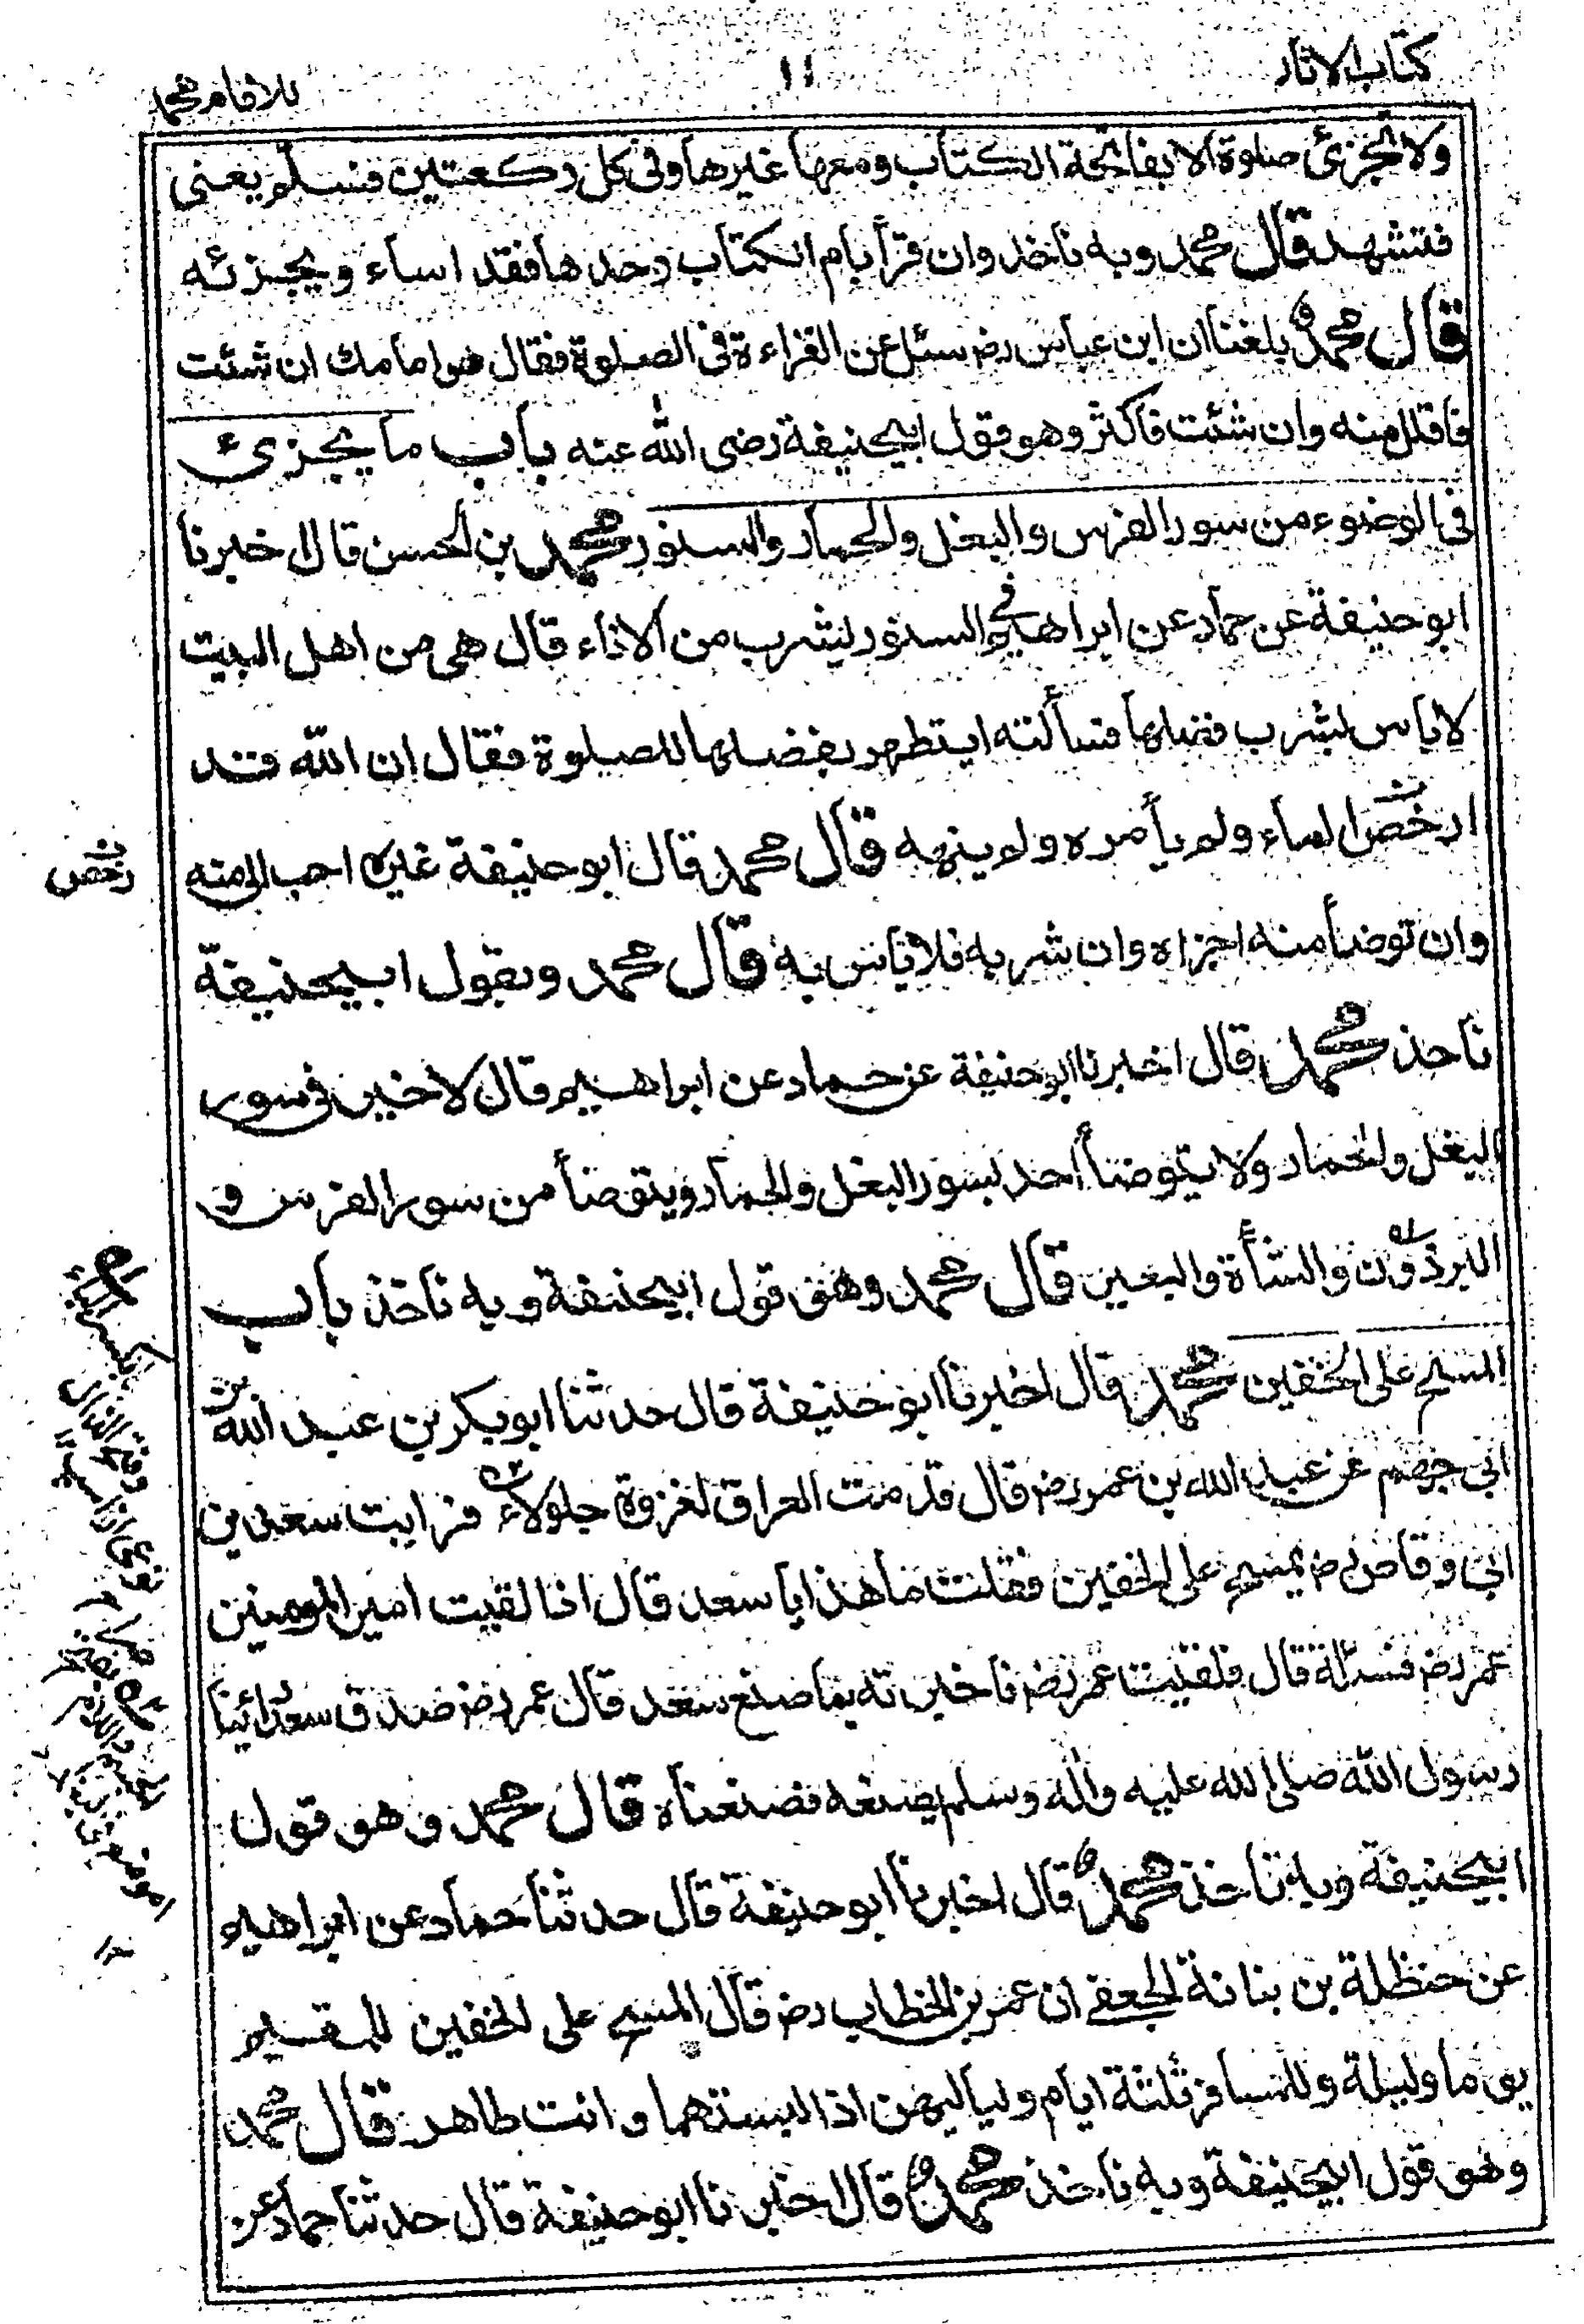 كتاب الاثار
١١
للامام محمد
ولا تجزئ صلوة الا بفاتحة الكتاب ومعها غيرها وفى كل ركعتين فسلم يعنى
فتشهد قال محمد وبه ناخذ وان قرأ بام الكتاب وحدها فقد اساء ويجزئه
قال محمد بلغنا ان ابن عباس رض سئل عن القراءة فى الصلوة فقال هو امامك ان شئت
فاقلل منه وان شئت فاكثر وهو قول ابيحنيفة رضى الله عنه باب ما يجزىء
فى الوضوء من سور الفرس والبغل والحمار والسنور محمد بن الحسن قال اخبرنا
ابو حنيفة عن حماد عن ابراهيم فى السنور يشرب من الاناء قال هى من اهل البيت
لا باس بشرب فضلها فسألته ايتطهر بفضلها للصلوة فقال ان الله قد
ارخص الماء ولم يأمره ولم ينهه قال محمد قال ابو حنيفة غيره احب الى منه
رخص
وان توضأ منه اجزاه وان شربه فلا باس به قال محمد وبقول ابيحنيفة
ناخذ محمد قال اخبرنا ابو حنيفة عن حماد عن ابراهيم قال لا خير فى سور
البغل والحمار ولا يتوضأ احد بسور البغل والحمار ويتوضأ من سور الفرس و
البرذون والشأة والبعير قال محمد وهو قول ابيحنيفة وبه ناخذ باب
المسح على الخفين محمد قال اخبرنا ابو حنيفة قال حدثنا ابو بكر بن عبد الله بن
ابى جهم عن عبد الله بن عمر رض قال قدمت العراق لغزوة جلولاء فرايت سعد بن
ابى وقاص رض يمسح على الخفين فقلت ما هذا يا سعد قال اذا لقيت امير المومنين
عمر رض فسئله قال فلقيت عمر رض فاخبرته بما صنع سعد قال عمر رض صدق سعد رائينا
رسول الله صلى الله عليه واله وسلم يصنعه فصنعناه قال محمد وهو قول
ابيحنيفة وبه ناخذ محمد قال اخبرنا ابو حنيفة قال حدثنا حماد عن ابراهيم
عن حنظلة بن بنانة الجعفى ان عمر بن الخطاب رض قال المسح على الخفين للمقيم
يوما وليلة وللمسافر ثلثة ايام ولياليهن اذا لبستهما وانت طاهر قال محمد
وهو قول ابيحنيفة وبه ناخذ محمد قال اخبرنا ابو حنيفة قال حدثنا حماد عن